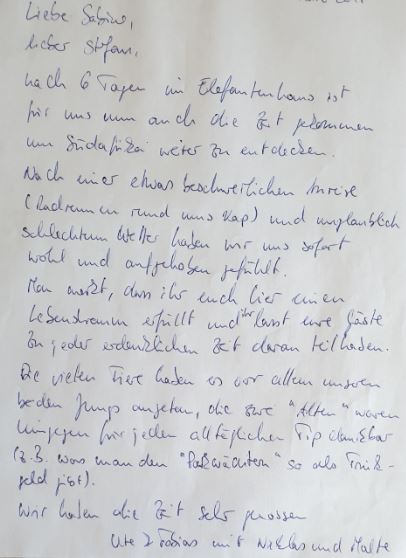 Liebe Sabine,
lieber Stefan,
nach 6 Tagen im Elefantenhaus ist
für uns nun auch die Zeit gekommen
um Südafrika weiter zu entdecken.
Nach einer etwas beschwerlichen Anreise
(Radrennen rund ums Kap) und unglaublich
schlechtem Wetter haben wir uns sofort
wohl und aufgehoben gefühlt.
Man merkt, dass ihr euch hier einen
Lebenstraum erfüllt und ihr lasst eure Gäste
zu jeder erdenklichen Zeit daran teilhaben.
Die vielen Tiere haben es vor allem unseren
beiden Jungs angetan, die zwei "Alten" waren
hingegen für jeden alltäglichen Tip dankbar
(z.B. was man den "Parkwächtern" so als Trink-
geld gibt).
Wir haben die Zeit sehr genossen
Ute & Tobias mit Niklas und Malte